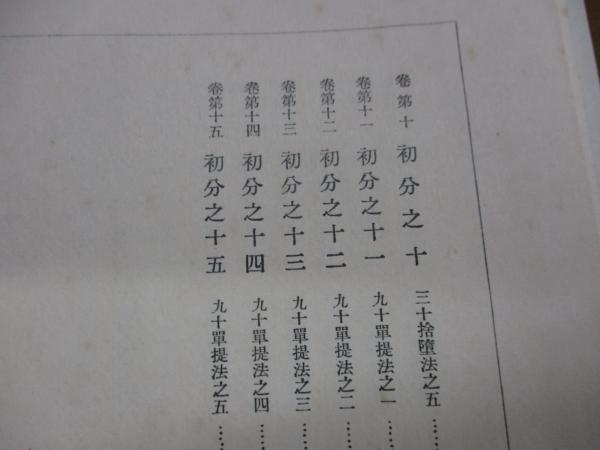 卷第十 初分之十 三十捨墮法之五……
卷第十一 初分之十一 九十單提法之一……
卷第十二 初分之十二 九十單提法之二……
卷第十三 初分之十三 九十單提法之三……
卷第十四 初分之十四 九十單提法之四……
卷第十五 初分之十五 九十單提法之五……